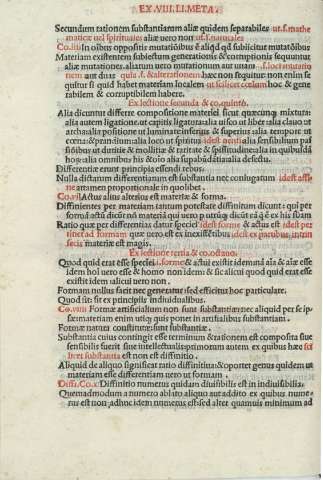 EX .VIII. LI. META.
Secundum rationem substantiarum aliæ quidem separabiles ut .s. mathe
maticæ uel spirituales aliæ uero non ut .s. naturales
Co. iiii In oibus oppositis mutatiōibus ē aliqd qd subiicitur mutatōibus
Materiam existentem subiectum generationis & corruptionis sequuntur
aliæ mutationes. aliarum uero mutationum aut unam .s. loci mutatio
nem aut duas quia .s. & alterationem hæc non sequitur non enim si
quitur si quid habet materiam localem ut scilicet cœlum hoc & gene
rabilem & corrupubilem habere.
Ex lectione secunda & co. quinto.
Alia dicuntur differre compositione materiei sicut quæcunq mixtura:
alia autem ligatione. ut capitis ligatura alia uisco ut liber alia clauo ut
archa alia positione ut luminare inferius & superius alia tempore ut
cœna & prandium alia loco ut spiritus idest uenti alia sensibilium pas
sibus ut duritie & mollitie & raritate & spissitudine alia in quibusdā
hoꝝ alia omnibus his & oīo alia supabūdātia alia defectu.
Differentiæ erunt principia essendi rebus.
Nulla dictarum differentiarum est substantia nec coniugatum idest assi
ne attamen proportionale in quolibet.
Co. vii Actus alius alterius est materiæ & formæ.
Diffinientes per materiam tantum potestate diffinitum dicunt: qui per
formā actu dicūt nō materiā qui uero p utrūq dicūt rā q̄ ē ex his suam
Ratio quæ per differentias datur speciei idest formæ & actus est idest per
tinet ad formam uero quæ ex inexistētibus idest ex particulari. rerum
secus materiæ est magis.
Ex lectione tertia & co. octauo.
Quod quid erat esse speciei .i. formæ & actui existit idem nā aīa & aīæ esse
idem hoī uero esse & homo non idem & sic alicui quod quid erat esse
existit idem alicui uero non.
Formam nullus facit nec generat sed efficitur hoc particulare.
Quod sit: sit ex principiis indiuidualibus.
Co. viiii Formæ artificialium non sunt substantiæ: nec aliquid per se ip
sæ materiam enim utiq quis ponet in artificialibus substantiam.
Formæ naturæ constitutæ: sunt substantiæ.
Substantia cuius contingit esse terminum & rationem est composita siue
sensibilis fuerit siue intellectualis: primorum autem ex quibus hæc scī
licet substantia est non est diffinitio.
Aliquid de aliquo significat ratio diffinitiua & oportet genus quidem ut
materiam esse differentiam uero ut formam.
Diffi. Co. x Diffinitio numerus quidam diuisibilis est in indiuisibilia.
Quemadmodum a numero ablato aliquo aut addito ex quibus nume
rus est non adhuc idem numerus est sed alter quamuis minimum ad